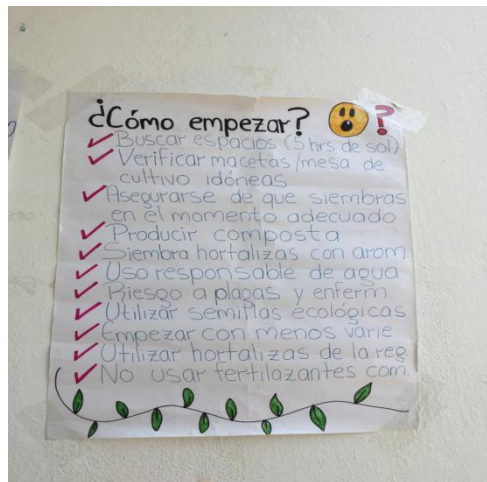 ¿Cómo empezar? ?
Buscar espacios (5 hrs de sol)
Verificar macetas/mesa de
cultivo idóneas
Asegurarse de que siembras
en el momento adecuado
Producir composta
Siembra hortalizas con arom.
Uso responsable de agua
Riesgo a plagas y enferm.
Utilizar semillas ecológicas
Empezar con menos varie.
Utilizar hortalizas de la reg
No usar fertilazantes com.